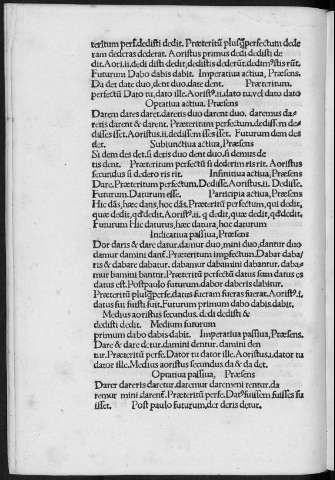 teritum perf. dedisti dedit. Præteritũ plusq̃perfectum dede
ram dederas dederat. Aoristus primus dedi dedisti de
dit. Aori. ii. dedi disti dedit, dedistis dederũt. dedimꝰstis rũt.
Futurum Dabo dabis dabit. Imperatiua actiua, Præsens.
Da det date duo, dent duo, date dent. Præteritum.
perfectũ Dato tu, dato ille. Aoristꝰ. ii. dato tu. vel duto dato
Optatiua actiua. Præsens
Darem dares daret. darens duo darent duo. daremus da-
retis darent & darent. Præteritum perfectum. dedissem de
disses isset. Aoristus. ii. dedissem isses isset. Futurum dem des
det. Subiunctiua actiua, Præsens
Si dem des det. si deris duo dent duo. si demus de
tis dent. Præteritum perfectũ si dederim ris rit. Aoristus
secundus si dedero ris rit. Infinitiua actiua, Præsens
Dare, Præteritum perfectum, Dedisse. Aoristus. ii. Dedisse.
Futurum. Daturum esse. Participia actiua, Præsens
Hic dãs, hæc dans, hoc dãs. Præteritũ perfectum, qui dedit,
quæ dedit, qđ dedit. Aoristꝰ. ii. q dedit, quæ dedit, qđ dedit.
Futurum Hic daturus, hæc datura, hoc daturum
Indicatiua passiua, Præsens
Dor daris & dare datur. damur duo, mini duo, dantur duo
damur damini danť. Præteritum impfectum. Dabar daba/
ris & dabare dabatur. dabamur dabamini dabantur. daba-
mur bamini bantur. Præteritũ perfectũ datus sum datus es
datus est. Postpaulo futurum. dabor daberis dabitur.
Præteritũ plusq̃perfe. datus fueram fueras fuerat. Aoristꝰ. i.
datus fui fuisti fuit. Futurum primum dabo dabis dabit.
Medius aoristus secundus. dedi dedisti &
dedisti dedit. Medium futurum
primum dabo dabis dabit. Imperatiua passiua, Præsens.
Dare & dare detur. damini dentur. damini den
tur. Præteritũ perfe. Dator tu dator ille. Aoristus. i. dator tu
dator ille. Medius aoristus secundus. da & da det.
Optatiua passiua, Præsens
Darer dareris daretur. daremur daremini rentur. da
remur mini. darenť. Præteritũ perfe. Datꝰ fuissem fuisses fu
isset. Post paulo futurum, der deris detur.